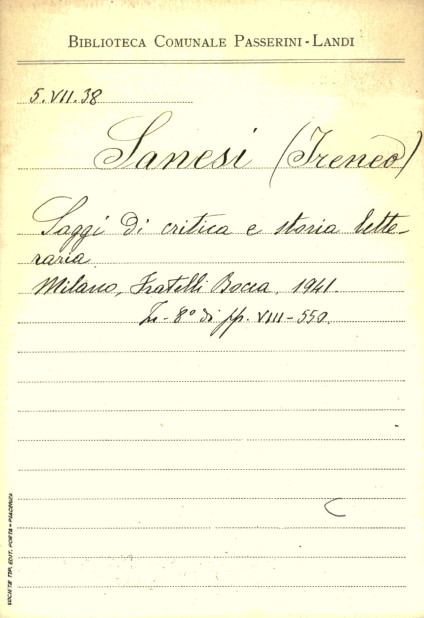 BIBLIOTECA COMUNALE PASSERINI-LANDI
5.VII.38
Sanesi (Ireneo)
Saggi di critica e storia lette-
raria.
Milano, Fratelli Bocca, 1941.
In-8° di pp. VIII-550.
SOCIETÀ TIP. EDIT. PORTA - PIACENZA